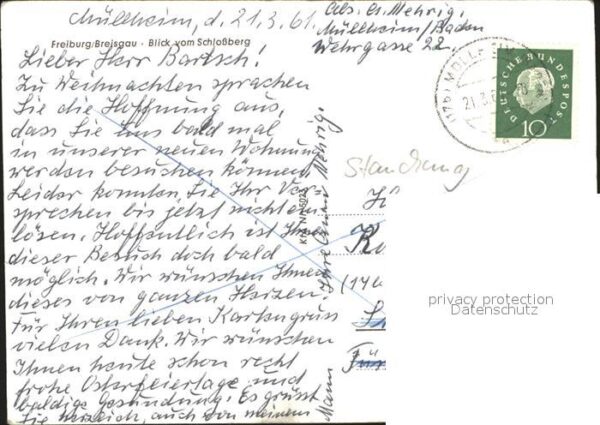 Müllheim, d. 21.3.61.
Abs. A. Mehrig,
Müllheim/Baden
Wehrgasse 22
Freiburg/Breisgau - Blick vom Schloßberg
Lieber Herr Bartsch!
Zu Weihnachten sprachen
Sie die Hoffnung aus,
dass Sie uns bald mal
in unserer neuen Wohnung
werden besuchen können.
Leider konnten Sie Ihr Ver-
sprechen bis jetzt nicht ein-
lösen. Hoffentlich ist Ihnen
dieser Besuch doch bald
möglich. Wir wünschen Ihnen
dieses von ganzem Herzen.
Für Ihren lieben Kartengruss
vielen Dank. Wir wünschen
Ihnen heute schon recht
frohe Osterfeiertage und
baldige Gesundung. Es grüsst
Sie herzlich, auch von meinem
Mann Ihre Mehrig.
DEUTSCHE BUNDESPOST
10
MÜLLHEIM
21.3.
privacy protection
Datenschutz